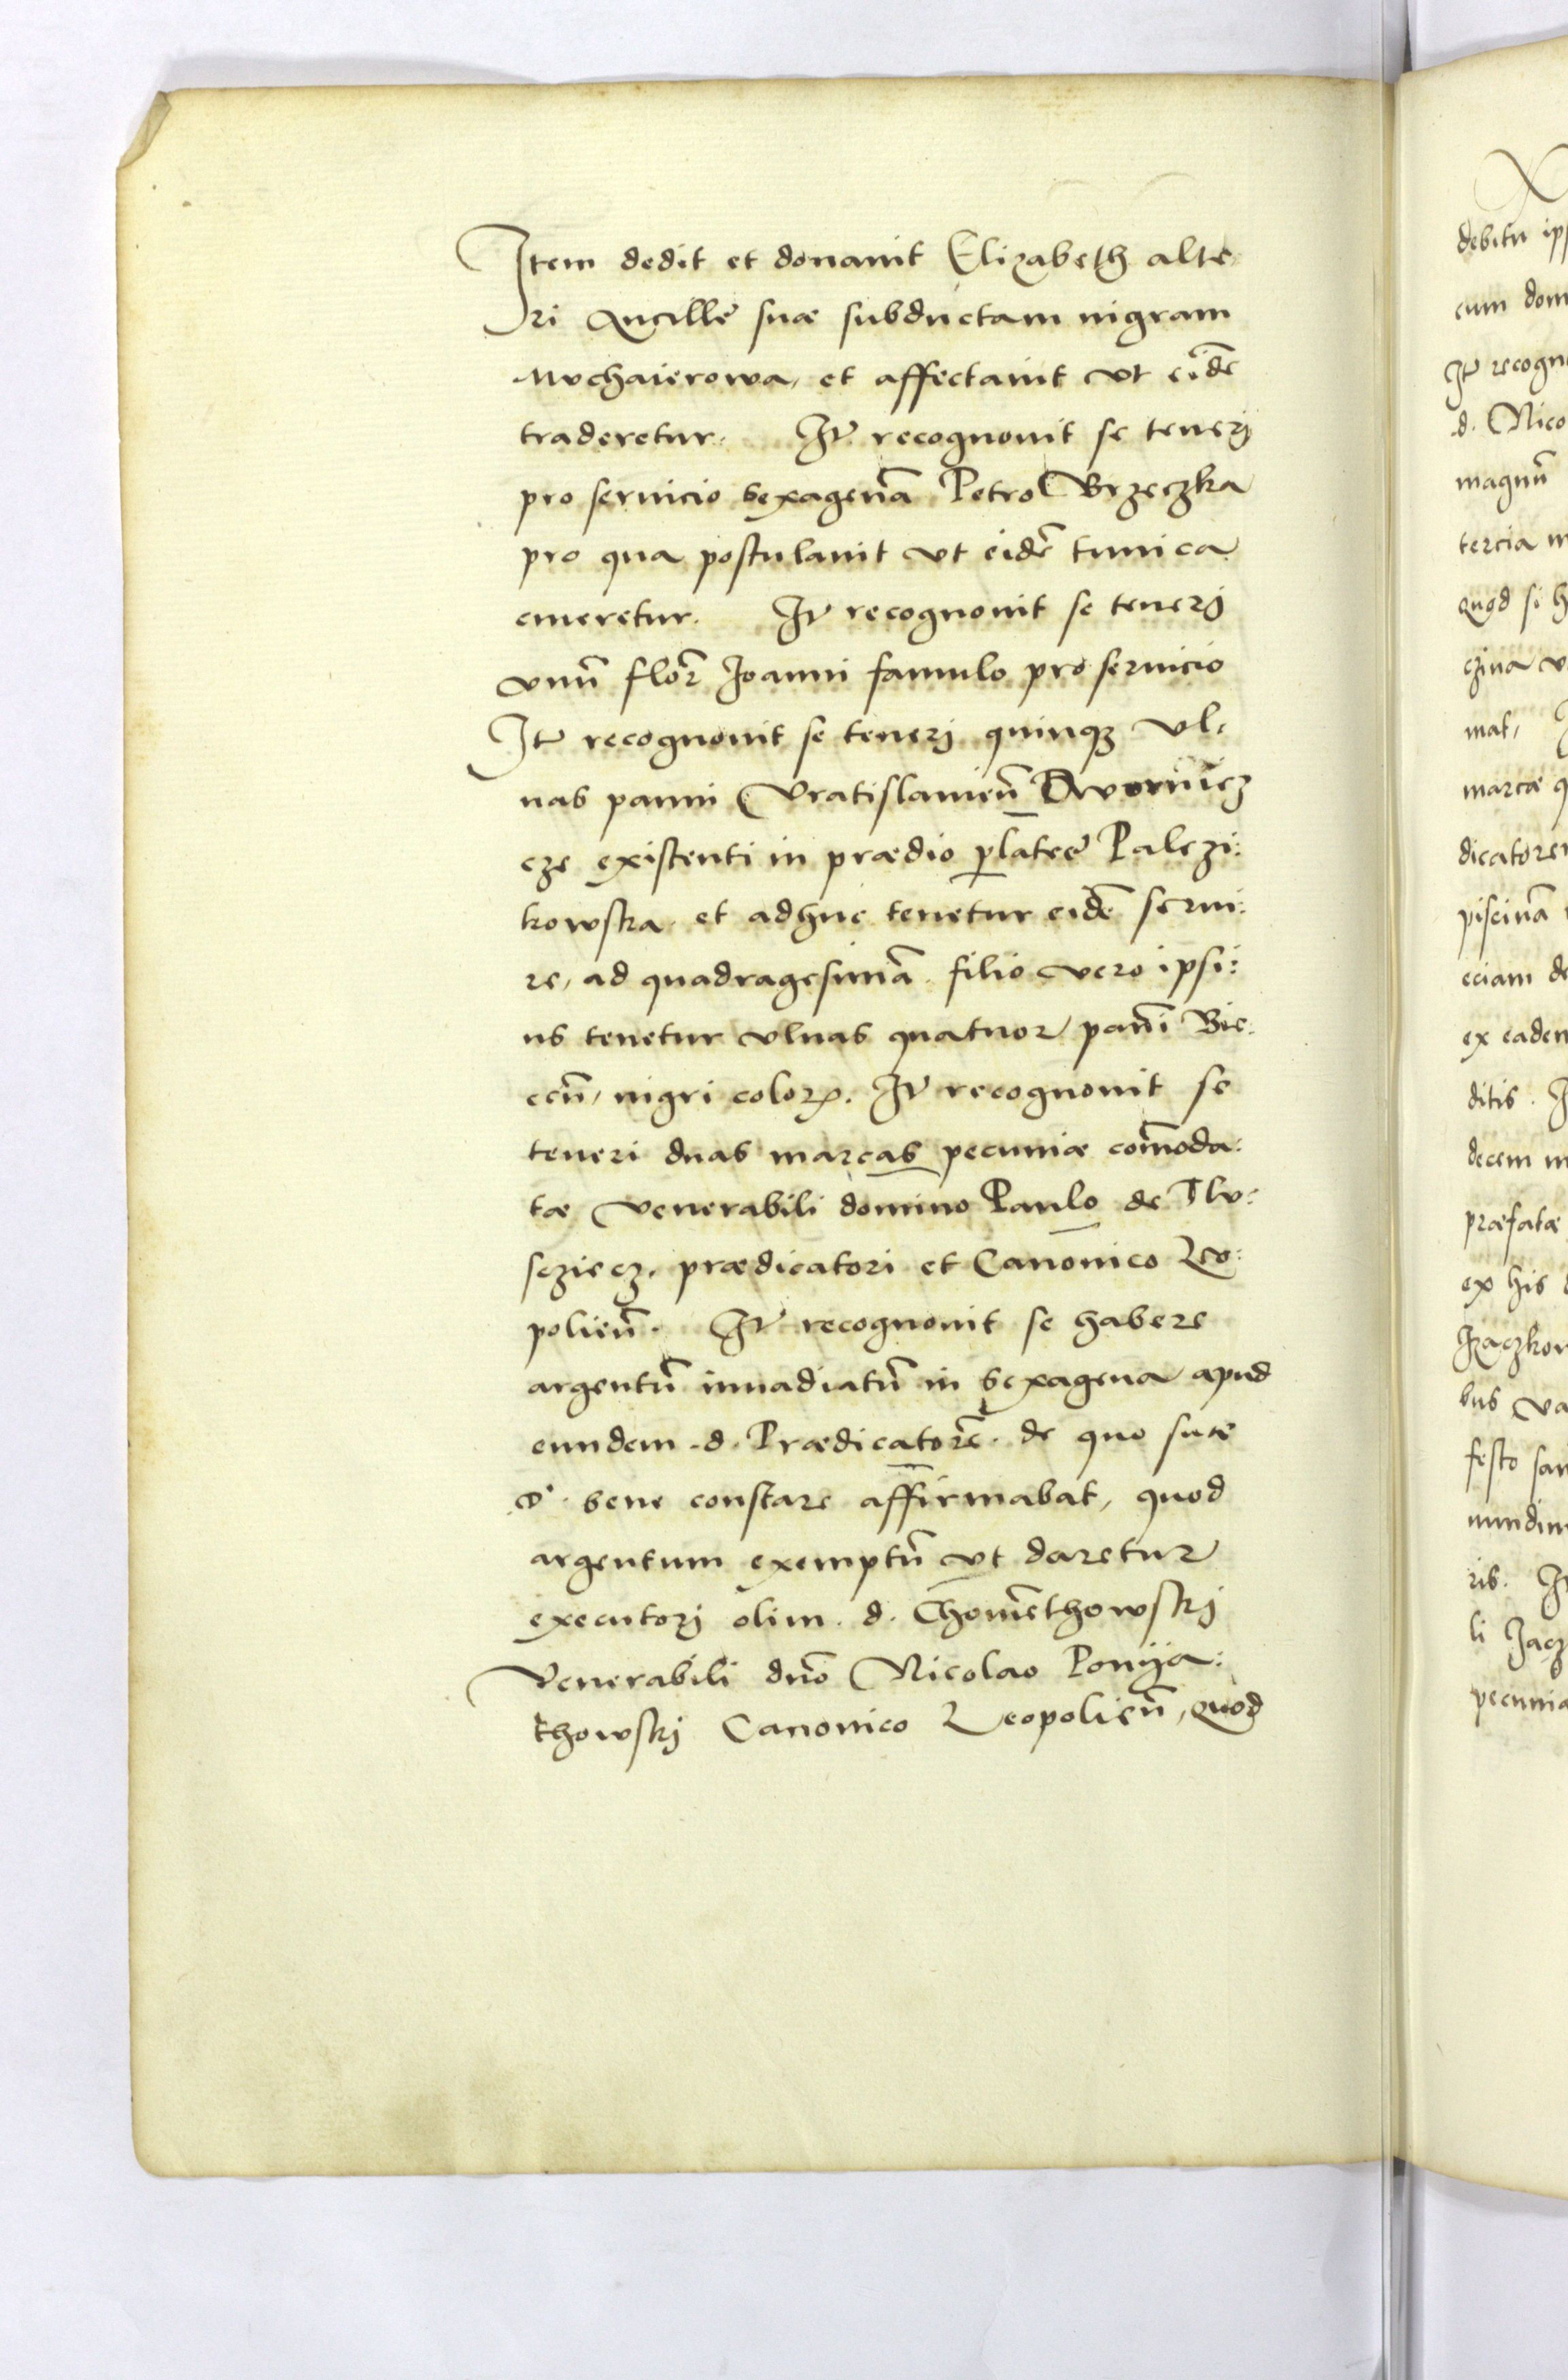 Item dedit et donauit Elizabeth alte,
ri Ancille suæ subductam nigram
Mvchaierowa, et affectauit vt eidē
traderetur. Itē recognouit se tenerj
pro seruicio sexagenā Petro Brzeczka
pro qua postulauit vt eidē tunica
emeretur. Itē recognouit se tenerj
vnū florē Joanni famulo pro seruicio
Itē recognouit se tenerj quinqꝫ vl,
nas panni Vratislauień Dwornicz
cze existenti in prædio ꝑlateę Palczi:
kowska et adhuc tenetur eidē serui:
re, ad quadragesimā. filio vero ipsi:
us tenetur vlnas quatuor pañi Bie:
ceń, nigri colorꝭ. Itē recognouit se
teneri duas marcas pecuniæ com̄oda:
tæ venerabili domino Paulo de Tlv:
szziecz. prædicatori et Canonico Leo:
polień. Itē recognouit se habere
argentū inuadiatū in sexagena apud
eundem .d. Prædicatorē. de quo suæ
d. bene constare affirmabat, quod
argentum exemptū vt daretur
executorj olim .d. Chomēthowskj
Venerabili dno Nicolao Ponya:
thowskj Canonico Leopolień, quod
debitu ip
cum dom
Itē recogn
.d. Nico
magnū
tercia m
quod si h
czina v
mat,
marcæ q
dicatorem
piscinā
eciam de
ex eadem
ditis. I
decem m
præfatæ
ex his
Jzaczkow
bus va
festo san
nundin
ris. It
li Jacz
pecunia